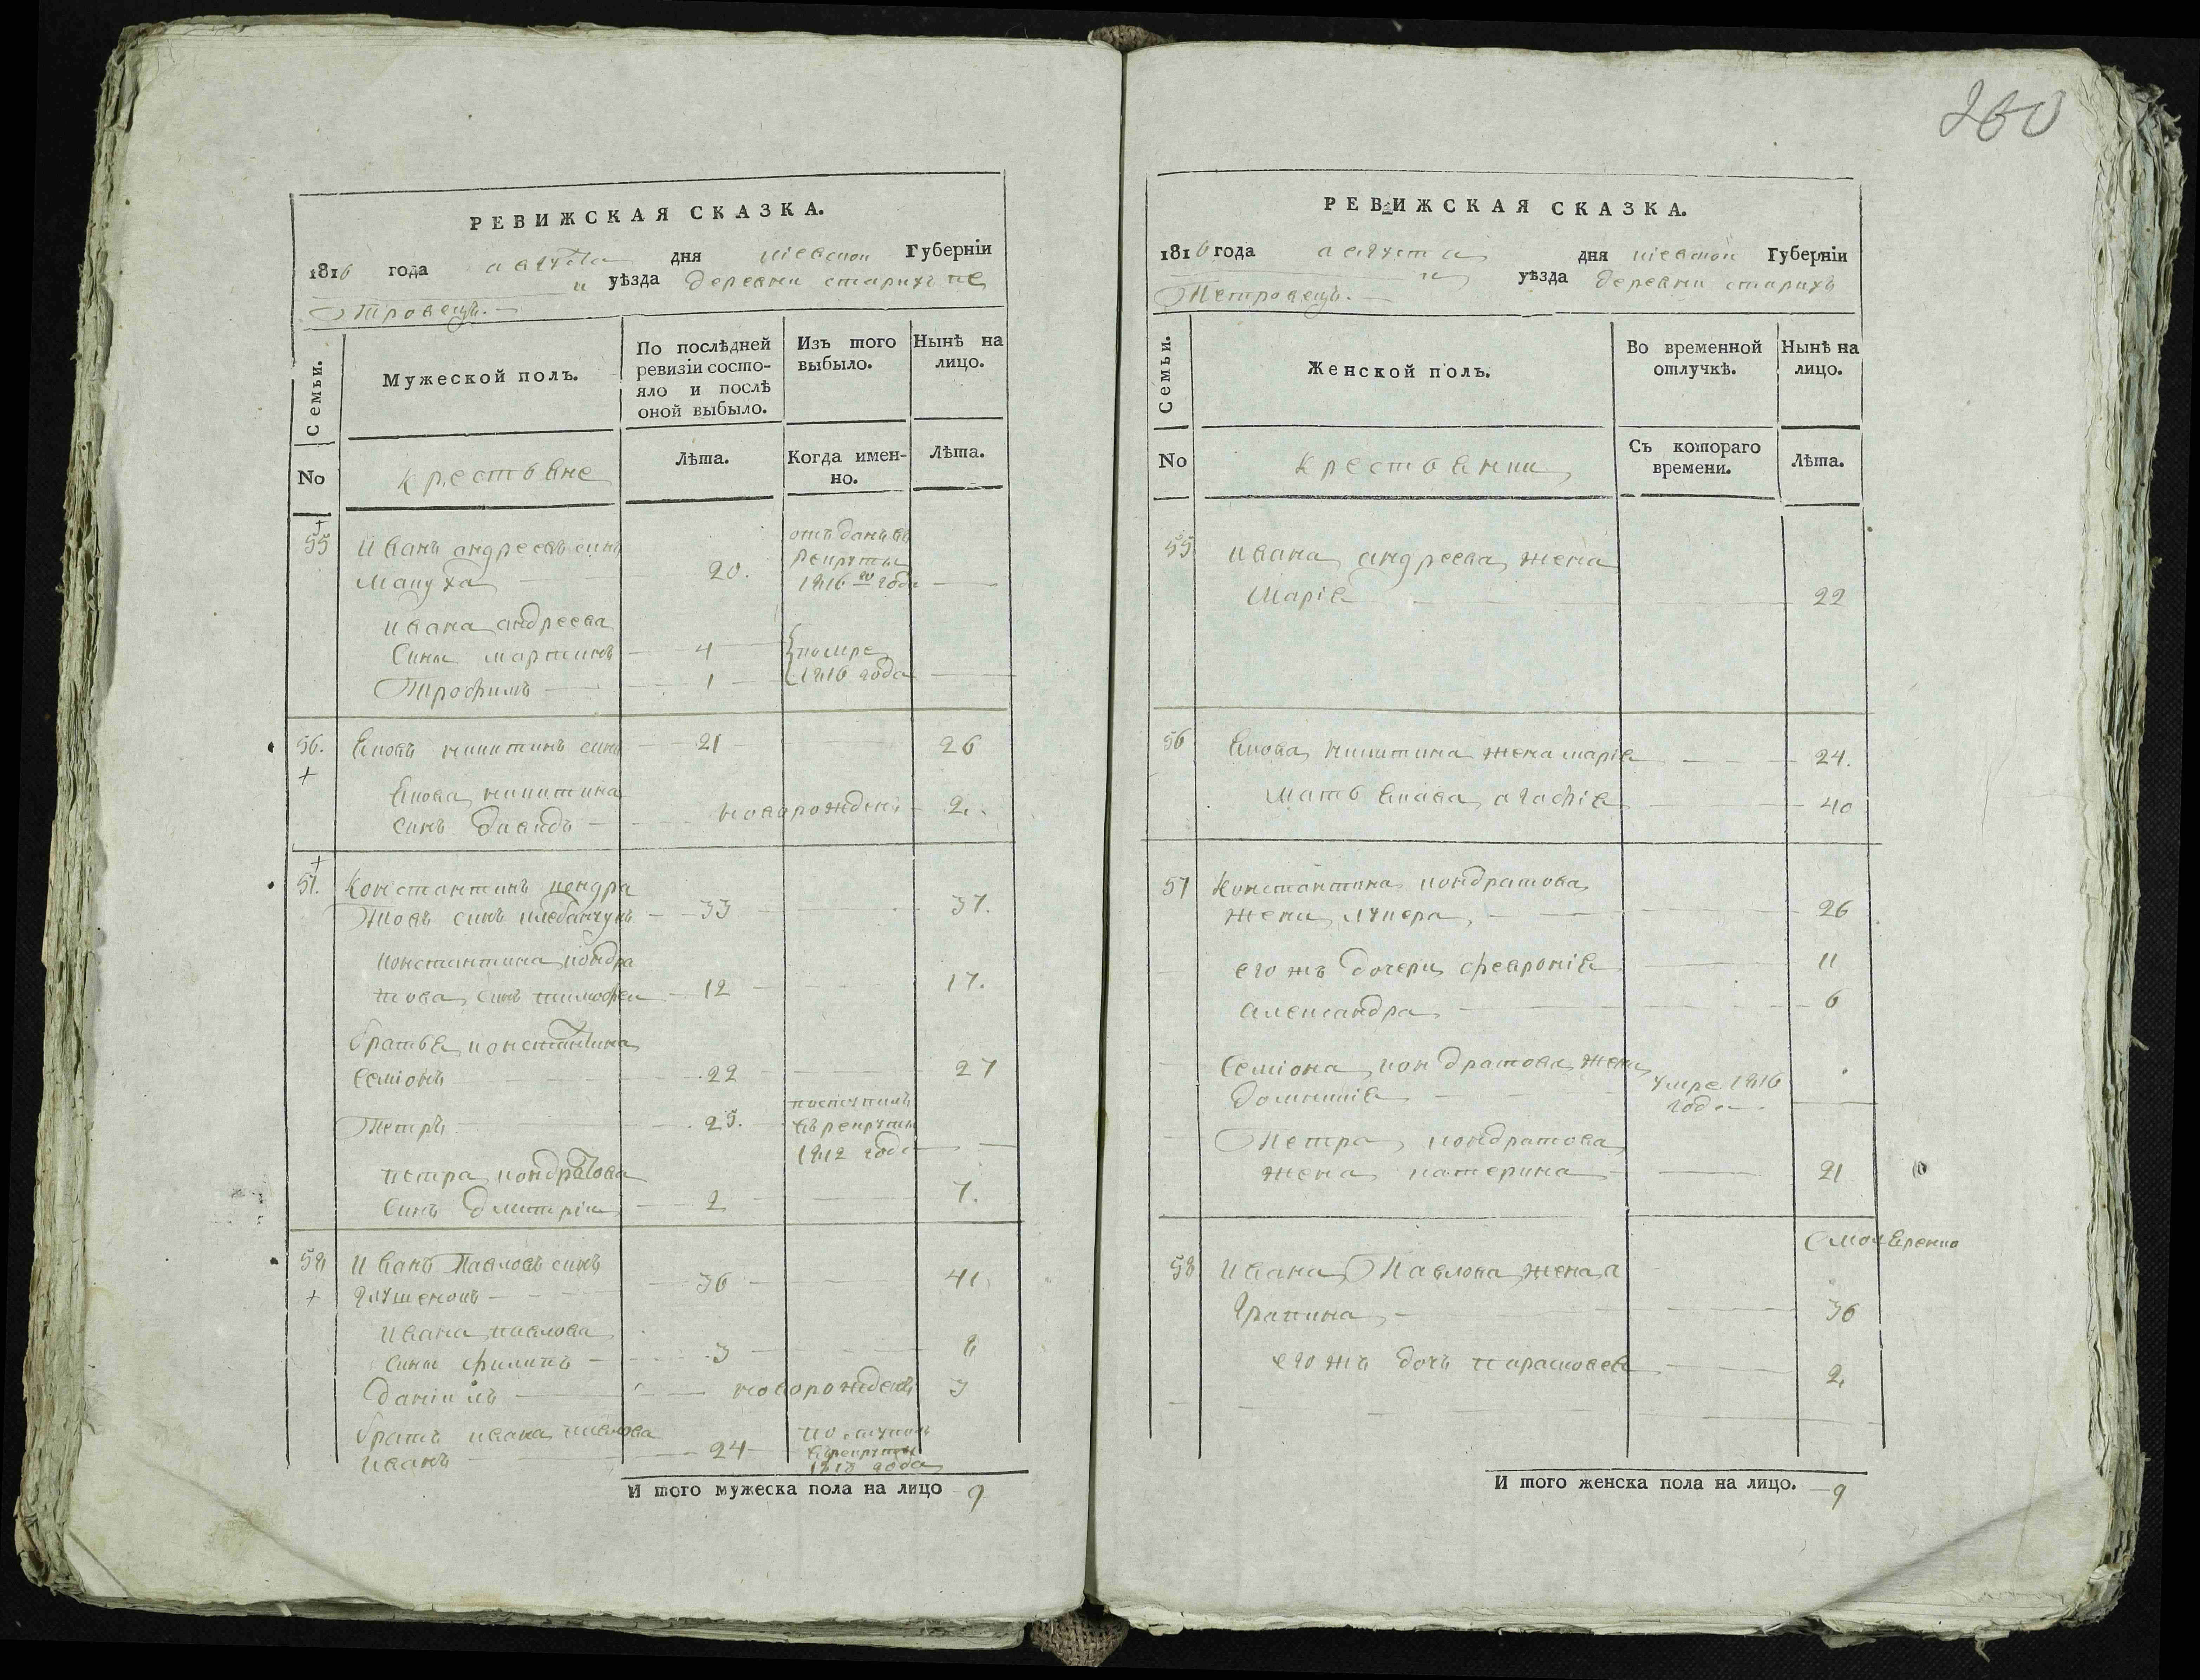 260
РЕВИЖСКАЯ СКАЗКА.
1816 года августа дня киевской Губерніи
уѣзда деревни старихъ пе
тровецъ.
Семьи.
Мужеской полъ.
По послѣдней ревизіи состо-
яло и послѣ
оной выбыло.
Изъ того
выбыло.
Нынѣ на
лицо.
No
крестьяне
Лѣта.
Когда имен-
но.
Лѣта.
55 Иванъ андреевъ синъ отъданъ въ
Мацуха 20. рекруты 1816го года
Ивана андреева
Сини мартинъ 4 помре
Трофимъ 1 1816 года
56. Яковъ никитинъ синъ 21 26
Якова никитина
синъ давидъ новорожденъ 2.
57. Константинъ кондра
товъ синъ 33 37.
константина кондра
това синъ тимофей 12 17.
братья константина
семіонъ 22 27
поступилъ
Петръ 25. въ рекруты
1812 года
петра кондратова
синъ дмитрій 2 7.
58 Иванъ Павловъ синъ
глушенокъ 36 41
Ивана павлова
сини филипъ 3 8
даніилъ новорожденъ 3
братъ ивана павлова поступилъ
иванъ 24 въ рекруты
1813 года
И того мужеска пола на лицо 9
РЕВИЖСКАЯ СКАЗКА.
1816 года августа дня киевской Губерніи
уѣзда деревни старихъ
Петровецъ.
Семьи.
Женской полъ.
Во временной
отлучкѣ.
Нынѣ на
лицо.
No
крестьянки
Съ котораго
времени.
Лѣта.
55 ивана андреева жена
Марія 22
56 Якова никитина жена марія 24.
мать якова агафія 40
57 Константина кондратова
жена лукера 26
его жъ дочери февронія 11
александра 6
Семіона кондратова жена умре 1816
домникія года
Петра кондратова
жена катерина 21
58 Ивана Павлова жена а
грапина 36
его жъ дочь парасковея 2
И того женска пола на лицо. 9